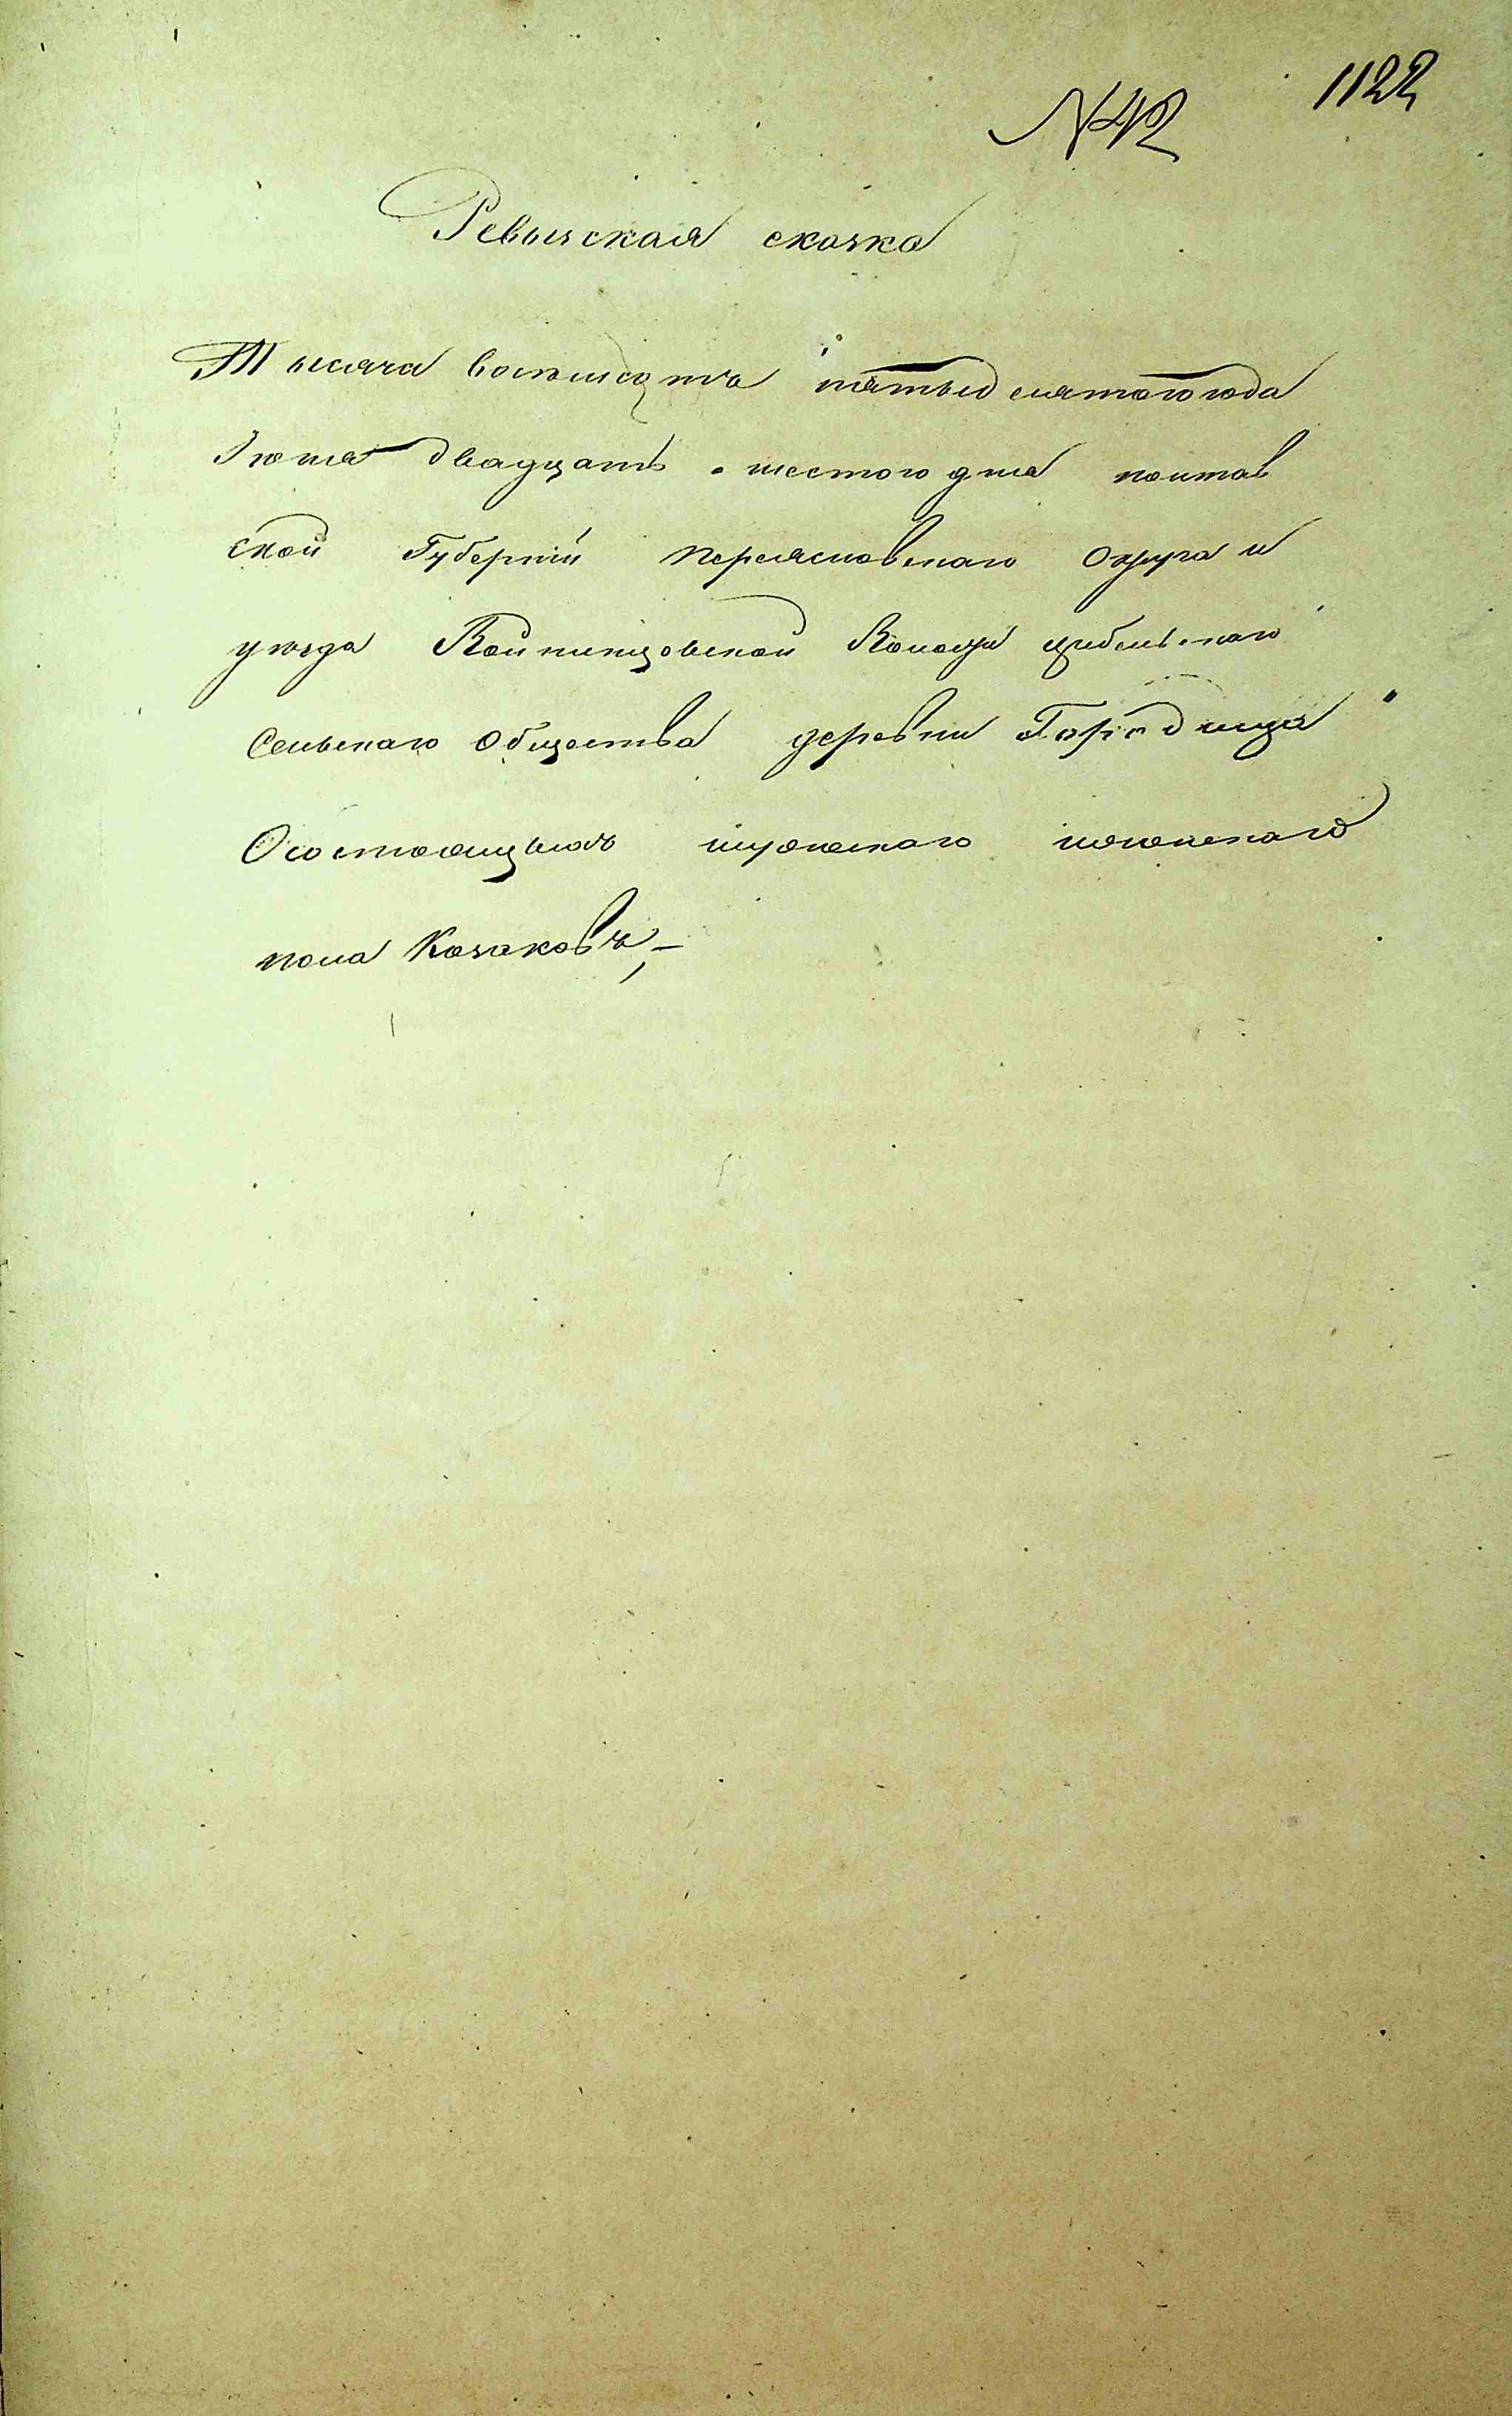 1122
№ 42
Ревизская сказка
Тысяча восемьсотъ пятьдесятаго года
Іюня двадцать шестого дня полтав
ской Губерніи Переясловскаго Округа и
уезда Войтовецкой Волости цибельскаго
Сельскаго Общества деревни Городища
О состоящихъ мужескаго женскаго
пола Козаковъ,-